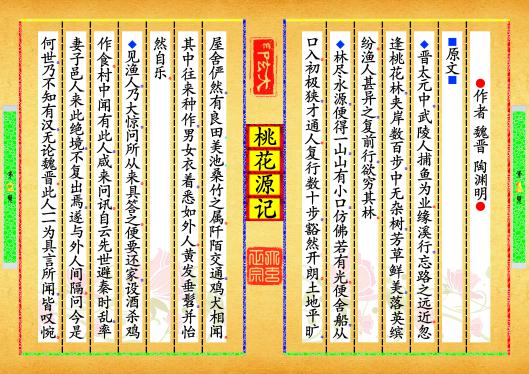 ●作者 魏晋 陶渊明●
■原文■
◆晋太元中武陵人捕鱼为业缘溪行忘路之远近忽
逢桃花林夹岸数百步中无杂树芳草鲜美落英缤
纷渔人甚异之复前行欲穷其林
◆林尽水源便得一山山有小口仿佛若有光便舍船从
口入初极狭才通人复行数十步豁然开朗土地平旷
桃花源记
屋舍俨然有良田美池桑竹之属阡陌交通鸡犬相闻
其中往来种作男女衣着悉如外人黄发垂髫并怡
然自乐
◆见渔人乃大惊问所从来具答之便要还家设酒杀鸡
作食村中闻有此人咸来问讯自云先世避秦时乱率
妻子邑人来此绝境不复出焉遂与外人间隔问今是
何世乃不知有汉无论魏晋此人一一为具言所闻皆叹惋